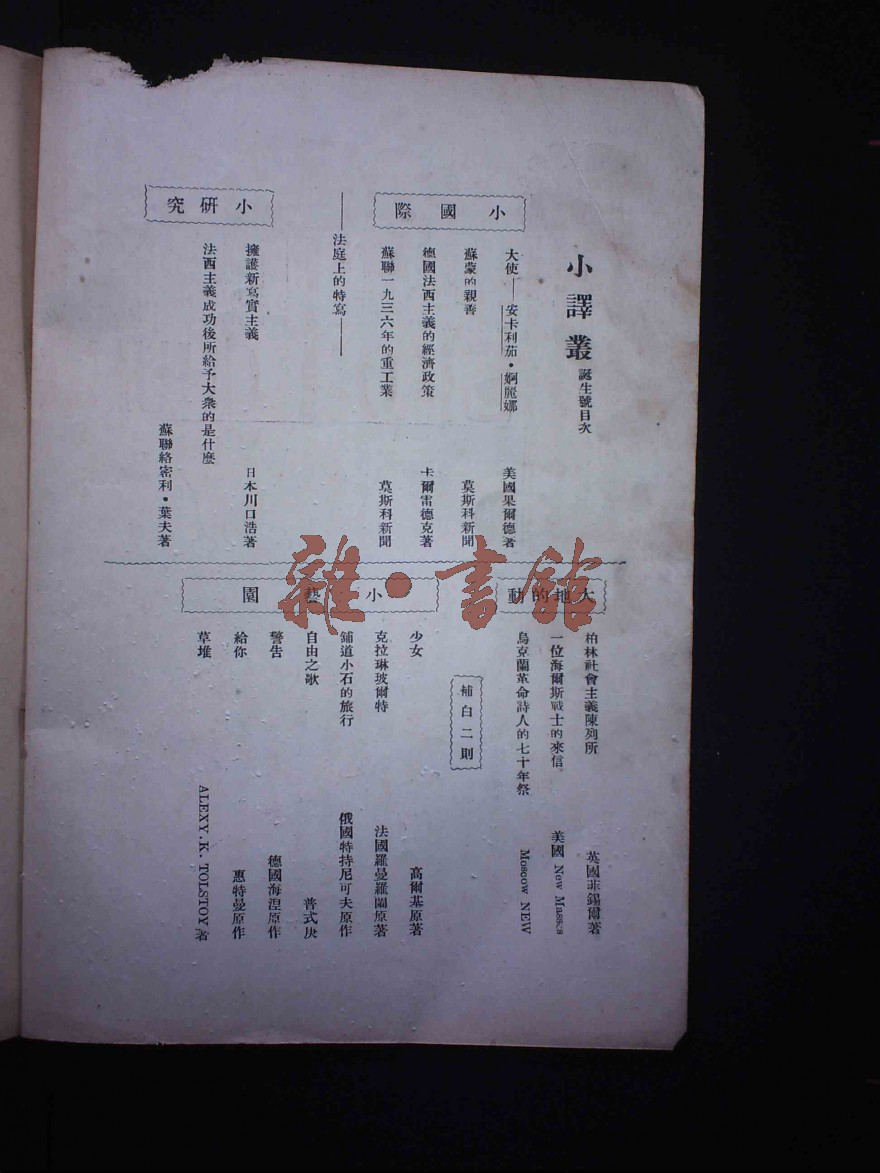 小譯叢 誕生號目次
小國際
大使——安卡利茄・婀麗娜 美國果爾德著
蘇蒙的親善 莫斯科新聞
德國法西主義的經濟政策 卡爾雷德克著
蘇聯一九三六年的重工業 莫斯科新聞
——法庭上的特寫——
小研究
擁護新寫實主義 日本川口浩著
法西主義成功後所給予大衆的是什麽
蘇聯絡密利・葉夫著
大地的動
柏林社會主義陳列所 英國菲錫爾著
一位海爾斯戰士的來信 美國 New Masses
烏克蘭革命詩人的七十年祭 Moscow NEW
補白二則
小藝園
少女 高爾基原著
克拉琳玻爾特 法國羅曼羅蘭原著
鋪道小石的旅行 俄國特持尼可夫原作
自由之歌 普式庚
警告 德國海涅原作
給你 惠特曼原作
草堆 ALEXY.K.TOLSTOY 著
雜・書館